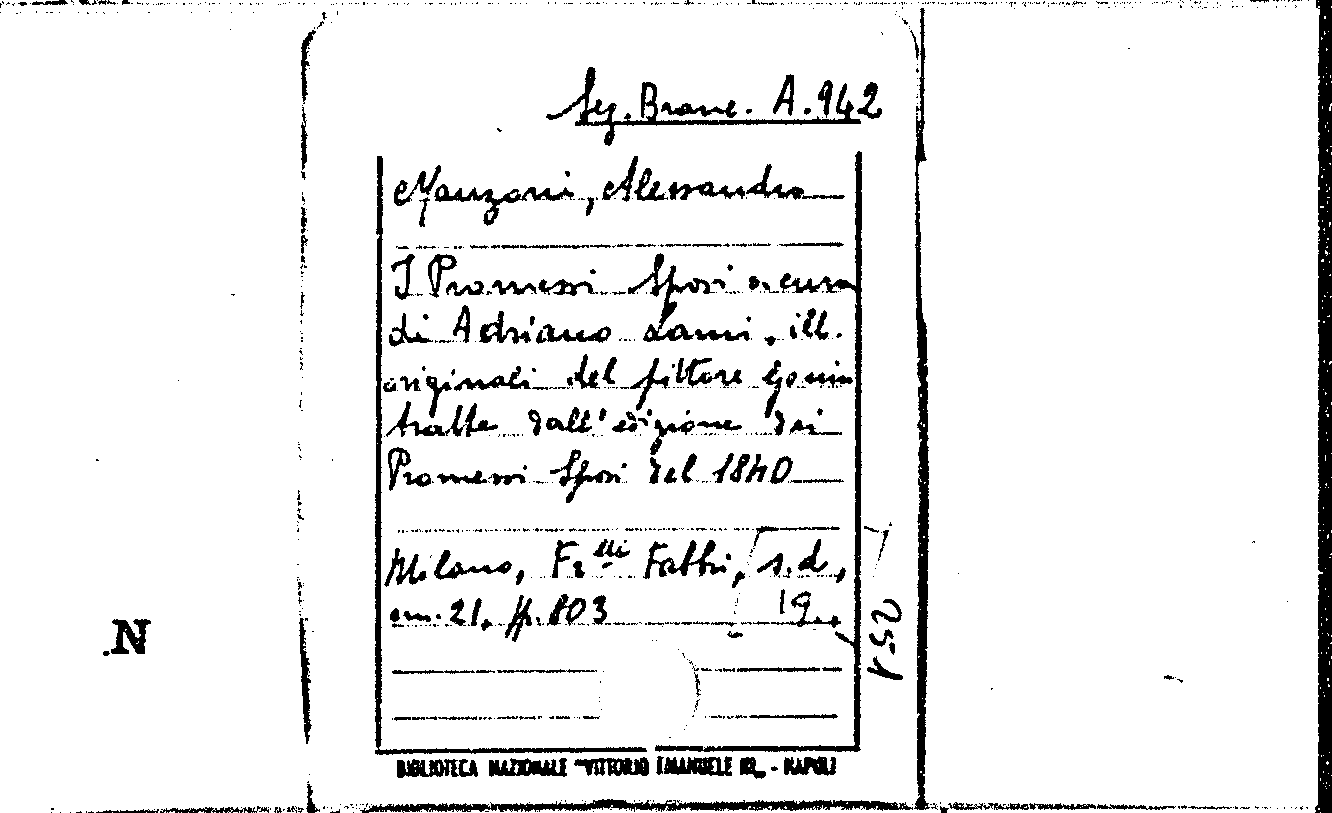 Seg. Branc. A.942
Manzoni, Alessandro
I Promessi Sposi a cura
di Adriano Lami, ill.
originali del pittore Gonin
tratte dall'edizione dei
Promessi Sposi del 1840
Milano, F.lli Fabbri, [s.d,
cm. 21, pp. 803 19..,
251
.N
BIBLIOTECA NAZIONALE "VITTORIO EMANUELE III„ - NAPOLI